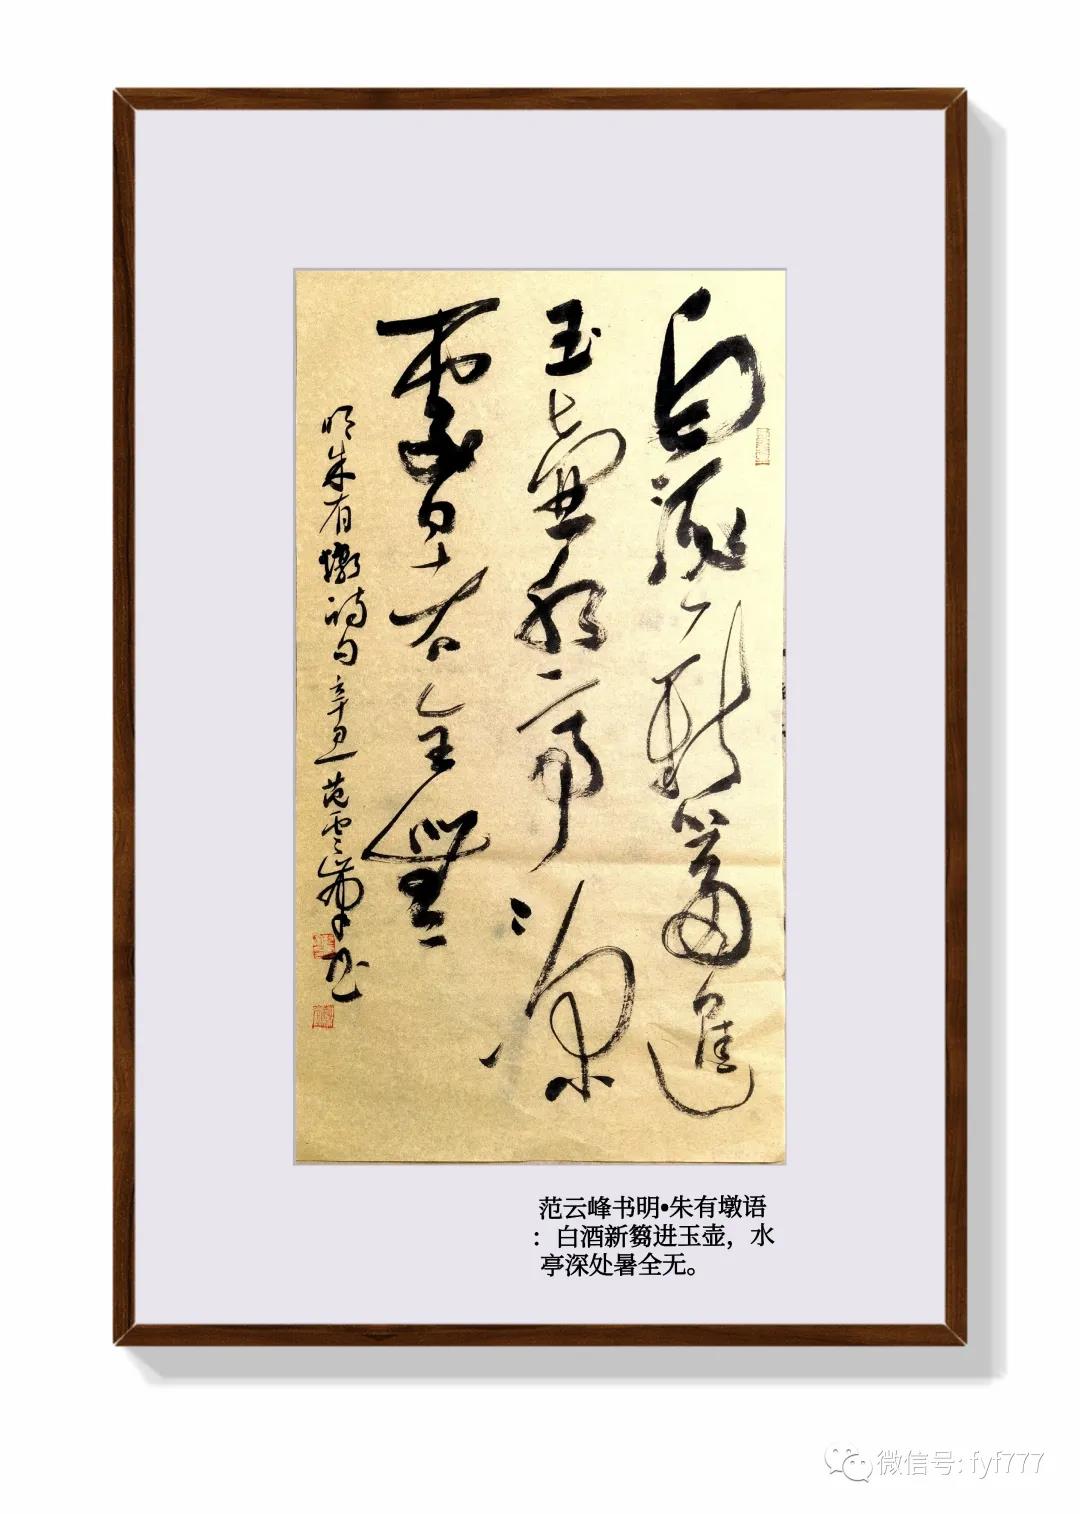 白酒新篘進
玉壺水亭深
處暑全無
明朱有燉詩句辛丑范雲峰书
范云峰书明•朱有墩语
：白酒新篘进玉壶，水
亭深处暑全无。
微信号: fyf777